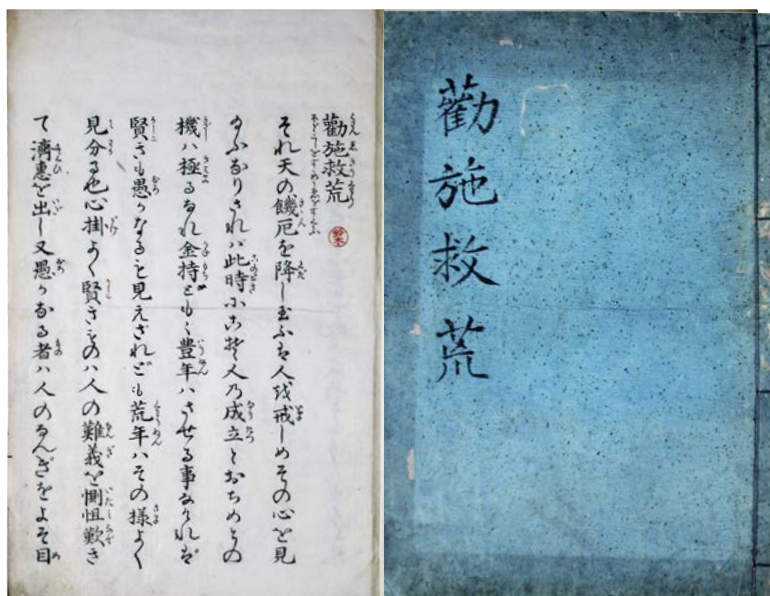 勸施救荒
勸施救荒
それ天の饑厄を降し玉ふは人を戒しめその心を見
玉ふなりされハ此時にこそ人乃成立とおちめとの
機ハ極るなれ金持とも豊年ハさせる事なけれバ
賢きも愚かなるも見えされども荒年ハその様よく
見分る也心掛よく賢きものハ人の難義を惻怛歎き
て濟惠を出し又愚かなる者ハ人のなんぎをよそ目